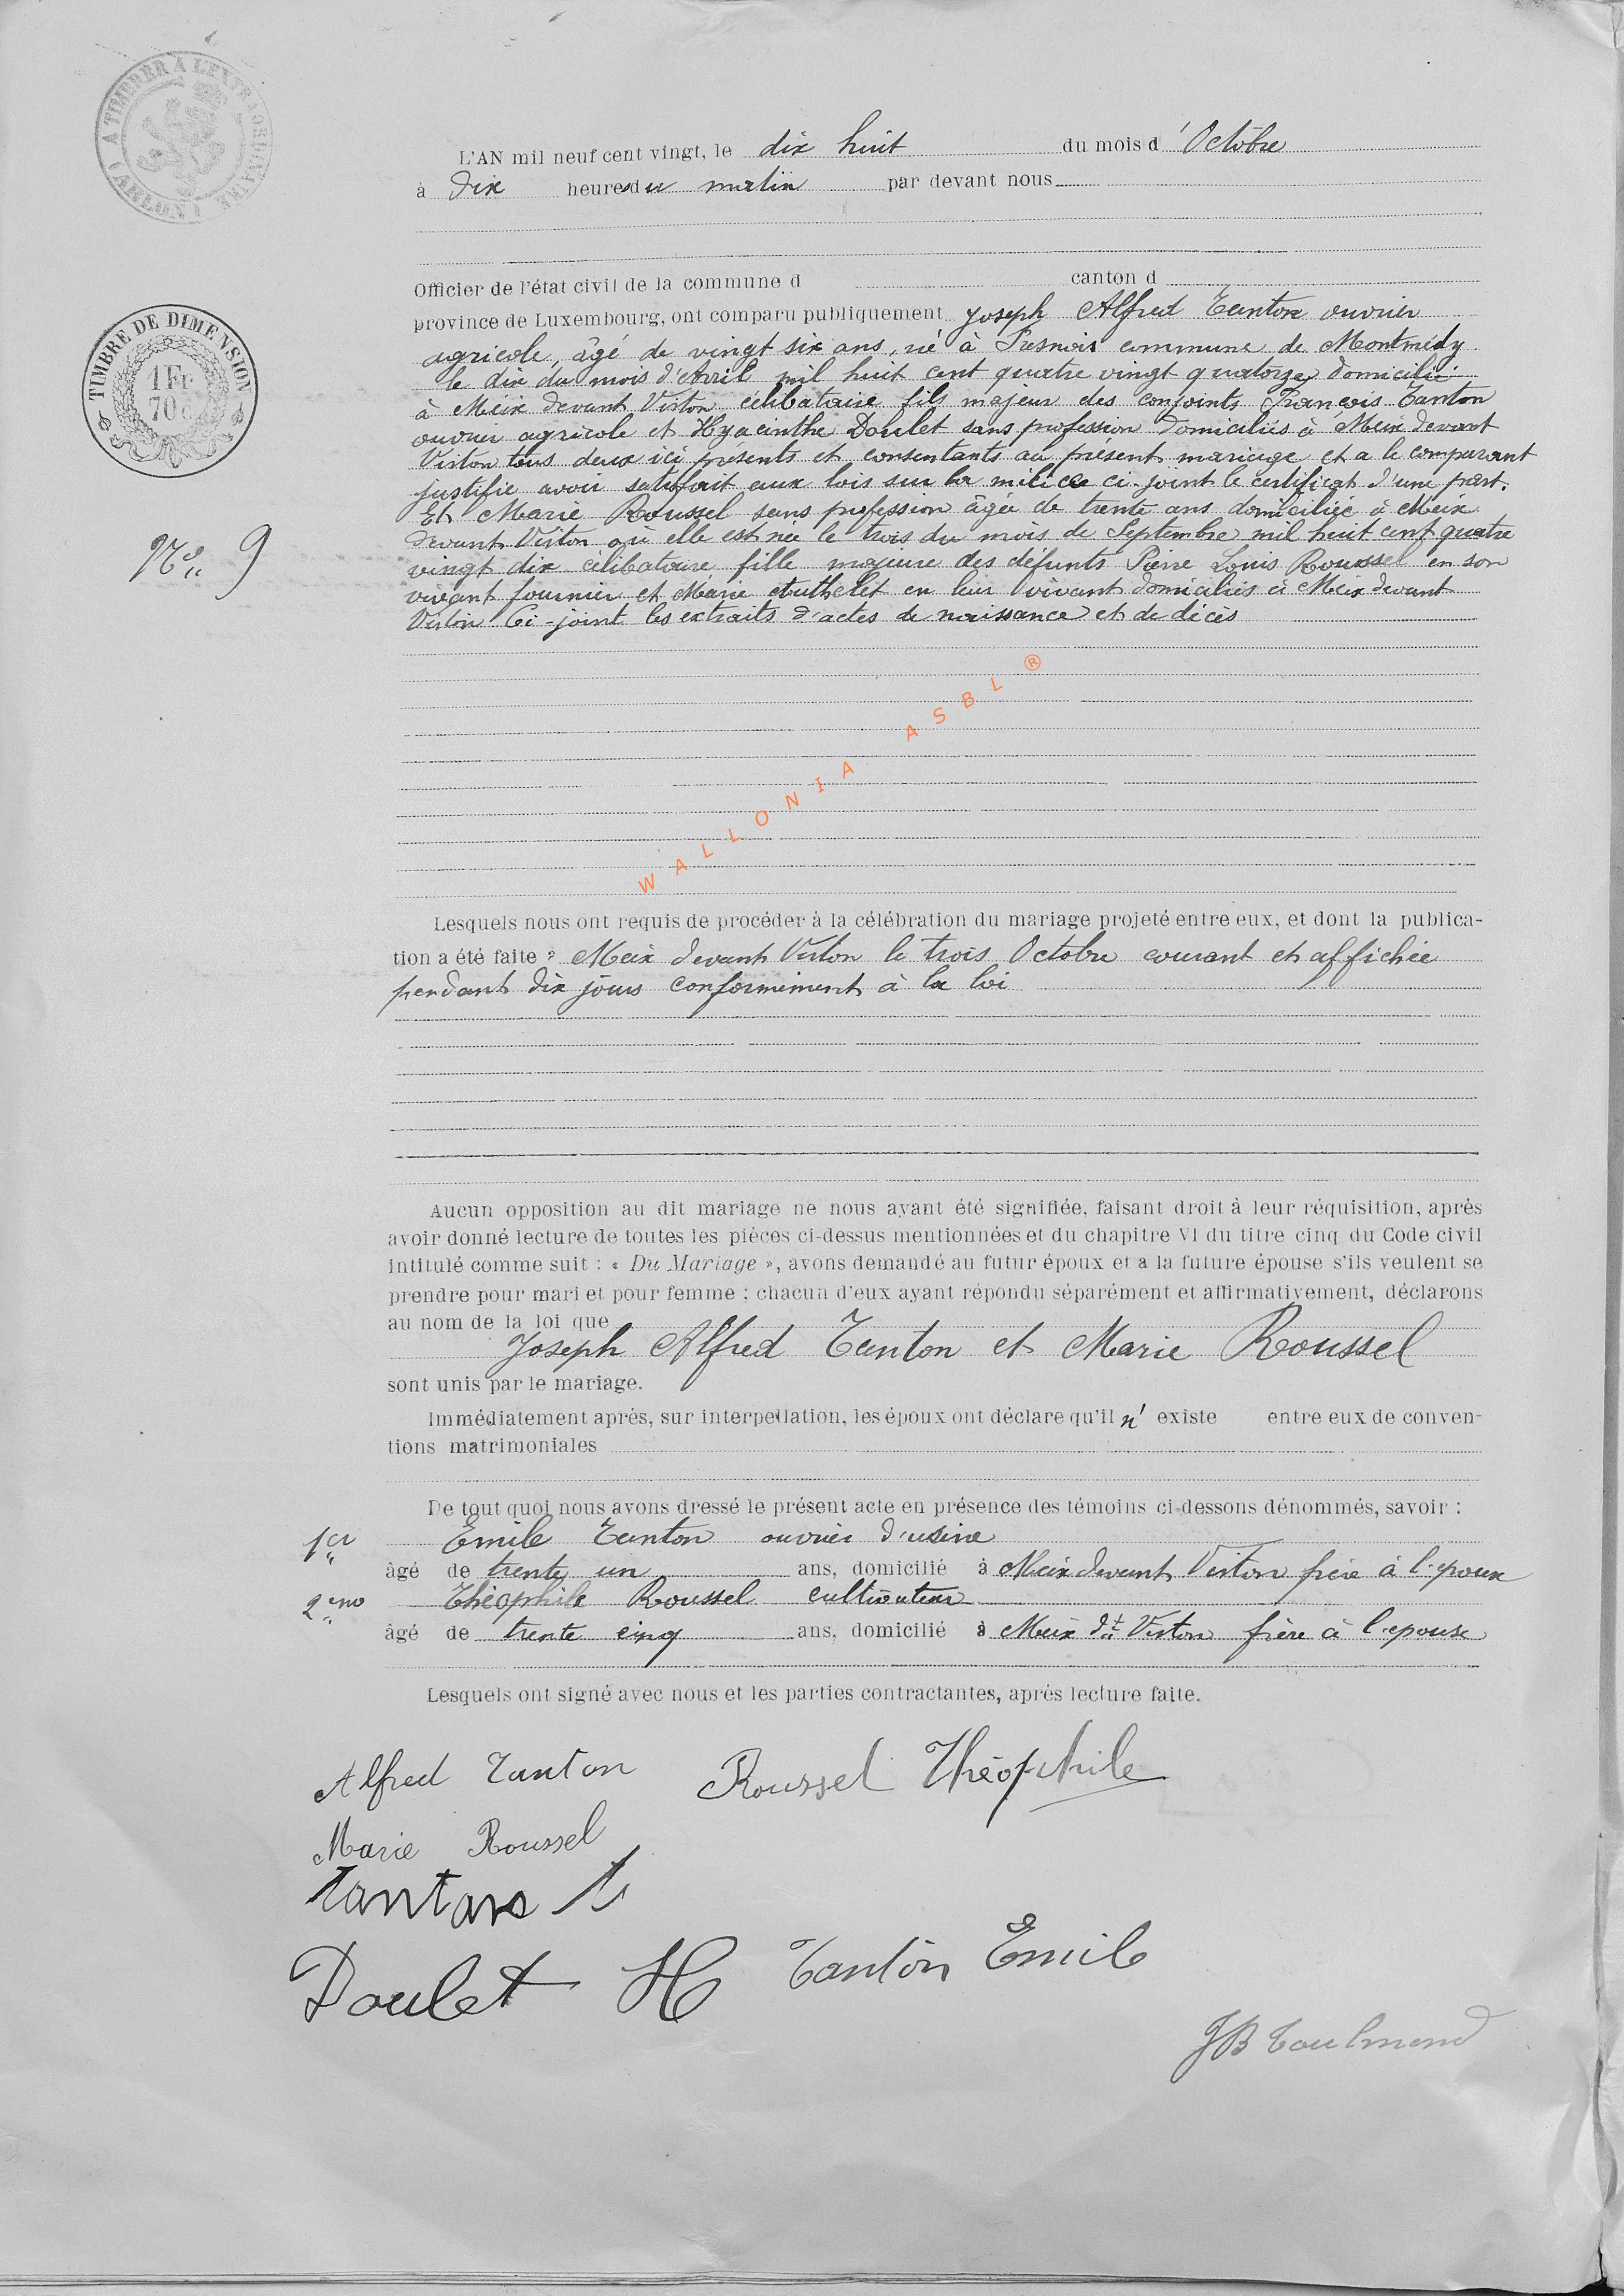 A TIMBRER A L'EXTRAORDINAIRE
( ARLON )
L'AN mil neuf cent vingt, le dix huit du mois d'Octobre
à dix heures du matin par devant nous
Officier de l'état civil de la commune d canton d
province de Luxembourg, ont comparu publiquement Joseph Alfred Tanton ouvrier
agricole, âgé de vingt six ans, né à Fresnois commune de Montmédy
le dix du mois d'Avril mil huit cent quatre vingt quatorze domicilié
à Meix devant Virton célibataire fils majeur des conjoints François Tanton
ouvrier agricole et Hyacinthe Doulet sans profession domiciliés à Meix devant
Virton tous deux ici présents et consentants au présent mariage et a le comparant
justifié avoir satisfait aux lois sur la milice ci-joint le certificat d'une part.
Et Marie Roussel sans profession âgée de trente ans domiciliée à Meix
devant Virton où elle est née le trois du mois de Septembre mil huit cent quatre
vingt dix célibataire fille majeure des défunts Pierre Louis Roussel en son
vivant fournier et Marie en leur vivant domiciliés à Meix devant
Virton Ci-joint les extraits d'actes de naissance et de décès
TIMBRE DE DIMENSION
1 FR
70 C
No 9
WALLONIA ASBL ®
Lesquels nous ont requis de procéder à la célébration du mariage projeté entre eux, et dont la publica-
tion a été faite à Meix devant Virton le trois Octobre courant et affichée
pendant dix jours conformément à la loi
Aucun opposition au dit mariage ne nous ayant été signifiée, faisant droit à leur réquisition, après
avoir donné lecture de toutes les pièces ci-dessus mentionnées et du chapitre VI du titre cinq du Code civil
intitulé comme suit : « Du Mariage », avons demandé au futur époux et a la future épouse s'ils veulent se
prendre pour mari et pour femme ; chacun d'eux ayant répondu séparément et affirmativement, déclarons
au nom de la loi que
Joseph Alfred Tanton et Marie Roussel
sont unis par le mariage.
Immédiatement après, sur interpellation, les époux ont déclare qu'il n' existe entre eux de conven-
tions matrimoniales
De tout quoi nous avons dressé le présent acte en présence des témoins ci-dessons dénommés, savoir :
1er Emile Tanton ouvrier d'usine
âgé de trente un ans, domicilié à Meix devant Virton frère à l'époux
2eme Théophile Roussel cultivateur
âgé de trente cinq ans, domicilié à Meix dt Virton frère à l'epouse
Lesquels ont signé avec nous et les parties contractantes, après lecture faite.
Alfred Tanton Roussel Théophile
Marie Roussel
Tanton
Doulet H Tanton Emile
JB Toulmond